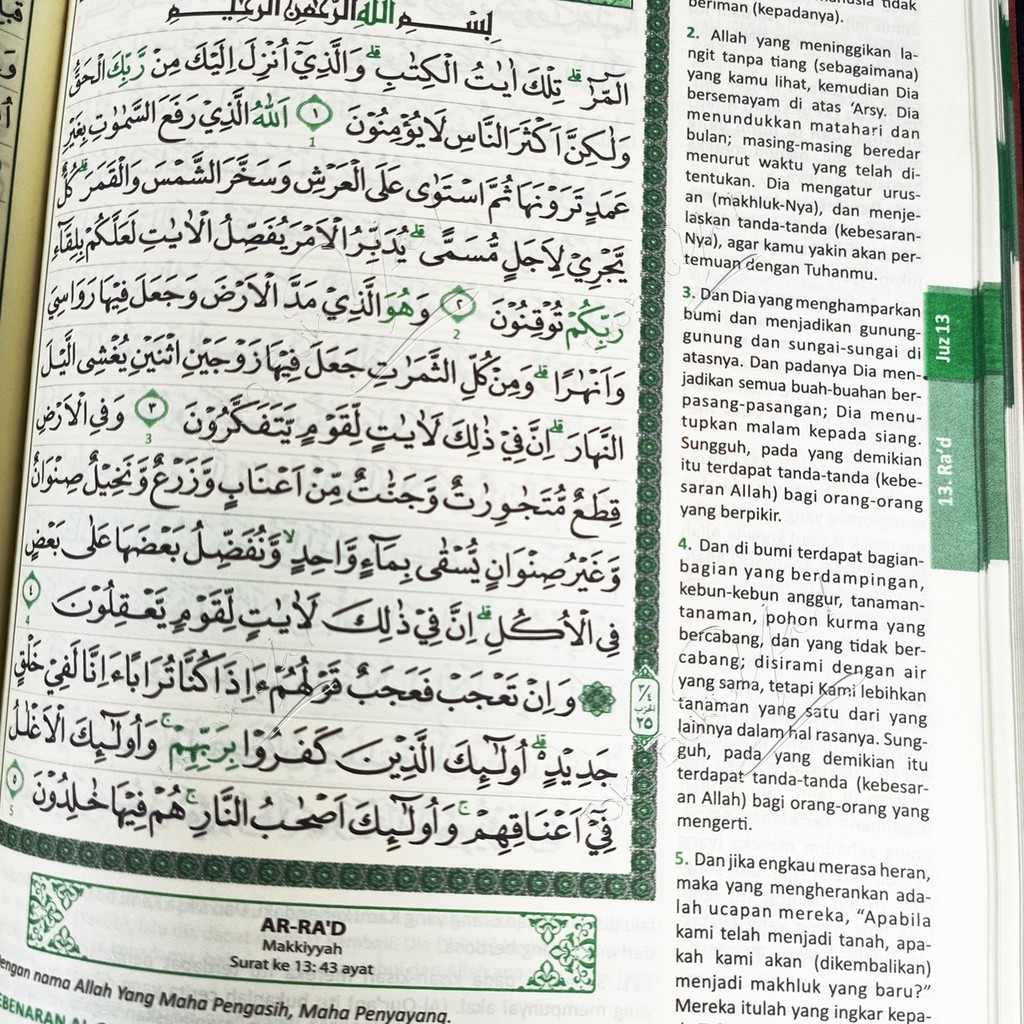 بِسْمِ اللّٰهِ الرَّحْمٰنِ الرَّحِيْمِ
الۤمّۤرٰ ۗ تِلْكَ اٰيٰتُ الْكِتٰبِ ۗ وَالَّذِيْٓ اُنْزِلَ اِلَيْكَ مِنْ رَّبِّكَ الْحَقُّ
وَلٰكِنَّ اَكْثَرَ النَّاسِ لَا يُؤْمِنُوْنَ ١ اَللّٰهُ الَّذِيْ رَفَعَ السَّمٰوٰتِ بِغَيْرِ
1
عَمَدٍ تَرَوْنَهَا ثُمَّ اسْتَوٰى عَلَى الْعَرْشِ وَسَخَّرَ الشَّمْسَ وَالْقَمَرَ ۗ كُلٌّ
يَّجْرِيْ لِاَجَلٍ مُّسَمًّى ۗ يُدَبِّرُ الْاَمْرَ يُفَصِّلُ الْاٰيٰتِ لَعَلَّكُمْ بِلِقَاۤءِ
رَبِّكُمْ تُوْقِنُوْنَ ٢ وَهُوَ الَّذِيْ مَدَّ الْاَرْضَ وَجَعَلَ فِيْهَا رَوَاسِيَ
2
وَاَنْهٰرًا ۗ وَمِنْ كُلِّ الثَّمَرٰتِ جَعَلَ فِيْهَا زَوْجَيْنِ اثْنَيْنِ يُغْشِى الَّيْلَ
النَّهَارَ ۗ اِنَّ فِيْ ذٰلِكَ لَاٰيٰتٍ لِّقَوْمٍ يَّتَفَكَّرُوْنَ ٣ وَفِى الْاَرْضِ
3
قِطَعٌ مُّتَجٰوِرٰتٌ وَّجَنّٰتٌ مِّنْ اَعْنَابٍ وَّزَرْعٌ وَّنَخِيْلٌ صِنْوَانٌ
وَّغَيْرُ صِنْوَانٍ يُّسْقٰى بِمَاۤءٍ وَّاحِدٍ ۙ وَّنُفَضِّلُ بَعْضَهَا عَلٰى بَعْضٍ
فِى الْاُكُلِ ۗ اِنَّ فِيْ ذٰلِكَ لَاٰيٰتٍ لِّقَوْمٍ يَّعْقِلُوْنَ ٤
4
وَاِنْ تَعْجَبْ فَعَجَبٌ قَوْلُهُمْ ءَاِذَا كُنَّا تُرَابًا ءَاِنَّا لَفِيْ خَلْقٍ
جَدِيْدٍ ۗ اُولٰۤىِٕكَ الَّذِيْنَ كَفَرُوْا بِرَبِّهِمْ ۚ وَاُولٰۤىِٕكَ الْاَغْلٰلُ
فِيْٓ اَعْنَاقِهِمْ ۚ وَاُولٰۤىِٕكَ اَصْحٰبُ النَّارِ ۚ هُمْ فِيْهَا خٰلِدُوْنَ ٥
5
٣/٤
الحزب
٢٥
AR-RA'D
Makkiyyah
Surat ke 13: 43 ayat
dengan nama Allah Yang Maha Pengasih, Maha Penyayang.
beriman (kepadanya).
2. Allah yang meninggikan la-
ngit tanpa tiang (sebagaimana)
yang kamu lihat, kemudian Dia
bersemayam di atas ‘Arsy. Dia
menundukkan matahari dan
bulan; masing-masing beredar
menurut waktu yang telah di-
tentukan. Dia mengatur urus-
an (makhluk-Nya), dan menje-
laskan tanda-tanda (kebesaran-
Nya), agar kamu yakin akan per-
temuan dengan Tuhanmu.
3. Dan Dia yang menghamparkan
bumi dan menjadikan gunung-
gunung dan sungai-sungai di
atasnya. Dan padanya Dia men-
jadikan semua buah-buahan ber-
pasang-pasangan; Dia menu-
tupkan malam kepada siang.
Sungguh, pada yang demikian
itu terdapat tanda-tanda (kebe-
saran Allah) bagi orang-orang
yang berpikir.
4. Dan di bumi terdapat bagian-
bagian yang berdampingan,
kebun-kebun anggur, tanaman-
tanaman, pohon kurma yang
bercabang, dan yang tidak ber-
cabang; disirami dengan air
yang sama, tetapi Kami lebihkan
tanaman yang satu dari yang
lainnya dalam hal rasanya. Sung-
guh, pada yang demikian itu
terdapat tanda-tanda (kebesar-
an Allah) bagi orang-orang yang
mengerti.
5. Dan jika engkau merasa heran,
maka yang mengherankan ada-
lah ucapan mereka, “Apabila
kami telah menjadi tanah, apa-
kah kami akan (dikembalikan)
menjadi makhluk yang baru?”
Mereka itulah yang ingkar kepa-
Juz 13
13. Ra’d